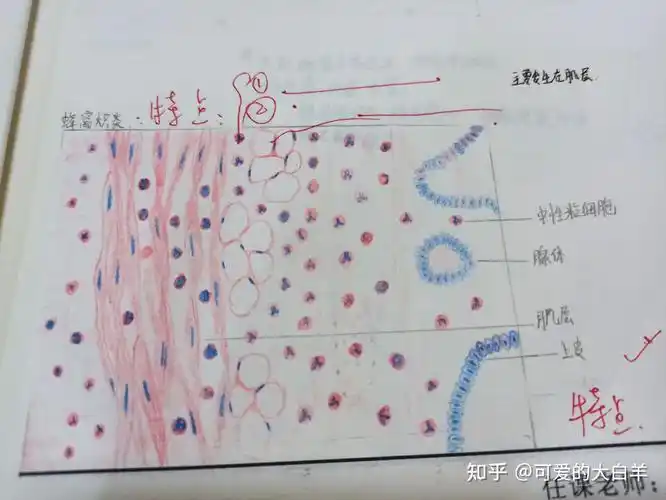 ①
主要发生在肌层
蜂窝炎类：特点：
②
中性粒细胞
腺体
肌层
上皮
特点
知乎 @可爱的大白羊
任课老师：